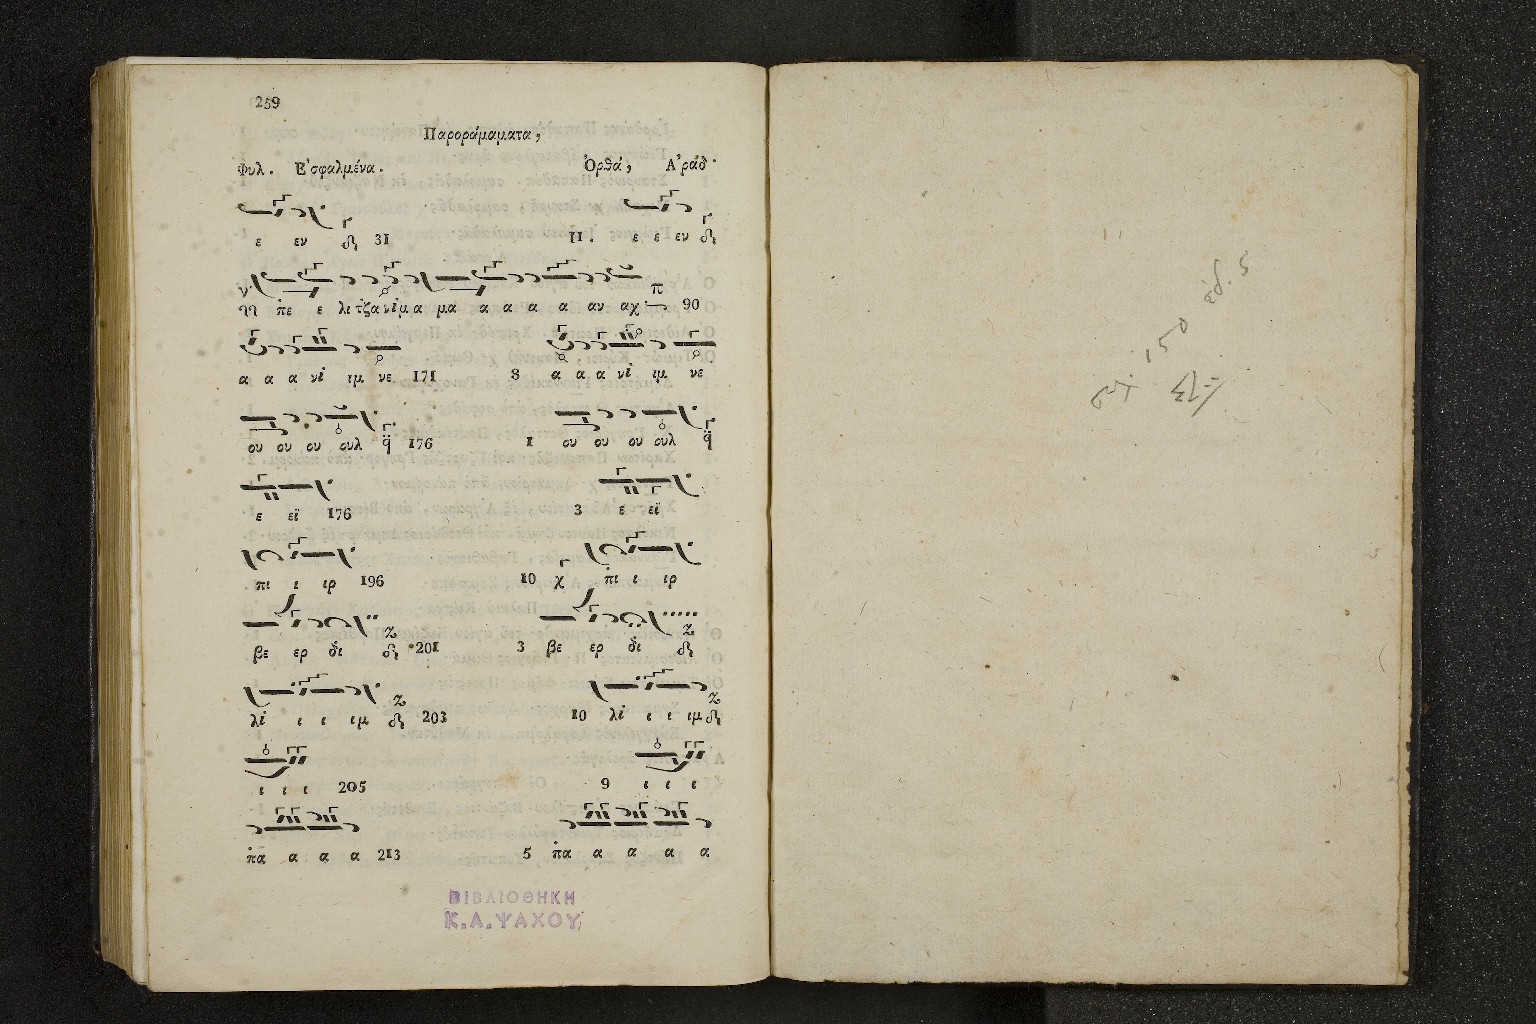 259
Παροράματα,
Φυλ. Ε᾽σφαλμένα. Ὀρθά, Α᾽ράδ·
ε εν 31 11. ε ε εν
πε ε λιτζανίμ α μα α α α α αν αχ 90
α α α νί ιμ νε 171 8 α α α νί ιμ νε
ου ου ου ουλ 176 1 ου ου ου ουλ
ε εϊ 176 3 ε εϊ
πι ι ιρ 196 10 χ πι ι ιρ
βε ερ δι 201 3 βε ερ δι
λί ι ι ιμ 203 10 λί ι ι ιμ
ι ι ι 205 9 ι ι ι
πα α α α 213 5 πα α α α α
ΒΙΒΛΙΟΘΗΚΗ
Κ.Α.ΨΑΧΟΥ
150